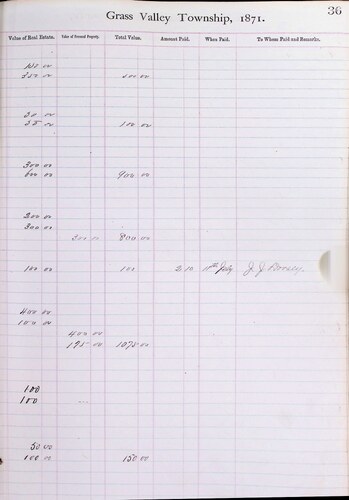 36
Grass Valley Township, 1871.
Value of Real Estate. Value of Personal Property. Total Value. Amount Paid. When Paid. To Whom Paid and Remarks.
150 00
350 00 500 00
100 00
300 00
600 00 900 00
300 00
300 00
200 00 800 00
100 00 100 2 10 11th July J. J.
400 00
100 00
400 00
175 00 1075 00
100
100
50 00
100 00 150 00